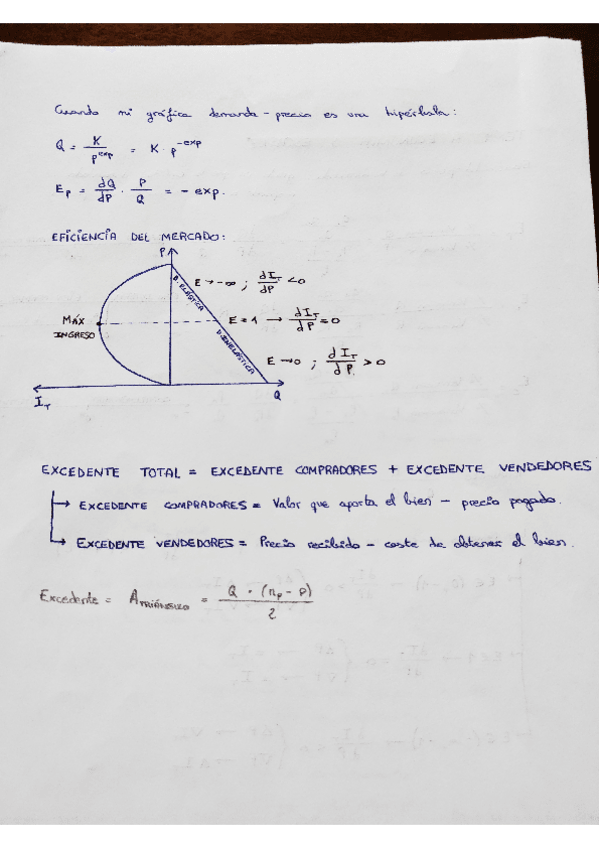 Cuando mi gráfica demanda-precio es una hipérbola:
Q = K / P^exp = K · P^-exp
E_P = dQ/dP · P/Q = - exp.
EFICIENCIA DEL MERCADO:
P
D. ELÁSTICA
E → -∞ ; dI_T/dP < 0
MÁX INGRESO
E = 1 → dI_T/dP = 0
D. INELÁSTICA
E → 0 ; dI_T/dP > 0
I_T
Q
EXCEDENTE TOTAL = EXCEDENTE COMPRADORES + EXCEDENTE VENDEDORES
→ EXCEDENTE COMPRADORES = Valor que aporta el bien - precio pagado.
→ EXCEDENTE VENDEDORES = Precio recibido - coste de obtener el bien.
Excedente = A_TRIÁNGULO = Q · (n_p - P) / 2